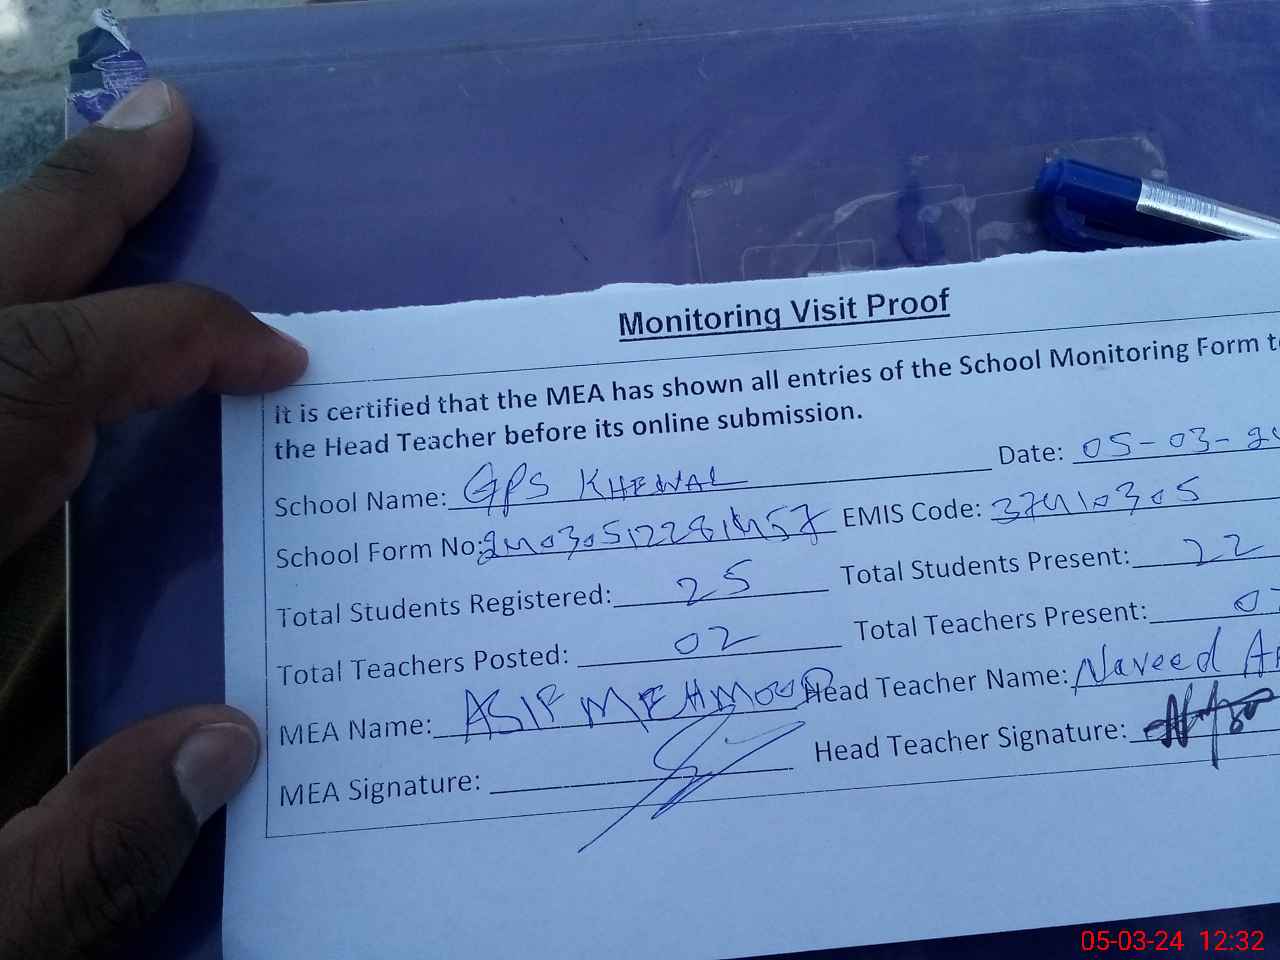 Monitoring Visit Proof
It is certified that the MEA has shown all entries of the School Monitoring Form to
the Head Teacher before its online submission.
School Name: GPS KHEWAL Date: 05-03-24
School Form No: 24030512281457 EMIS Code: 37410305
Total Students Registered: 25 Total Students Present: 22
Total Teachers Posted: 02 Total Teachers Present:
MEA Name: ASIF MEHMOOD Head Teacher Name: Naveed
MEA Signature: Head Teacher Signature:
05-03-24 12:32